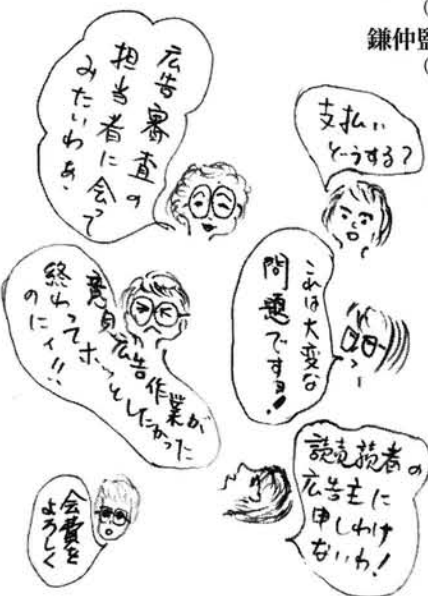 鎌仲監
広告審査の
担当者に会って
みたいわぁ、
支払い
どーうする?
これは大変な
問題ですョ!
意見広告作業が
終わってホッとしたかった
のにィ!!
読売読者の
広告主に
申しわけ
ないわ!
会費を
よろしく